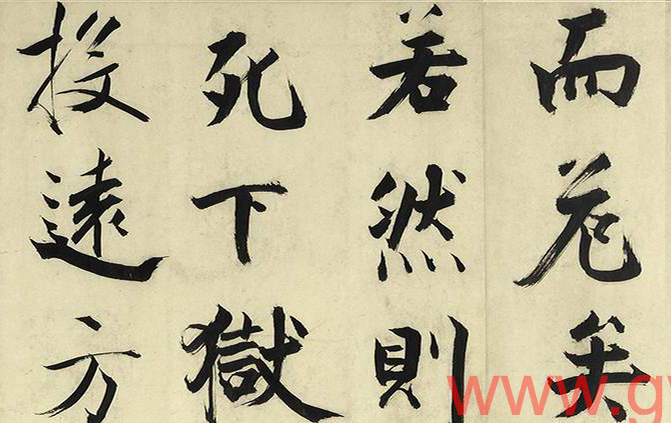 而危矣
若然則
死下獄
投遠方
www.g